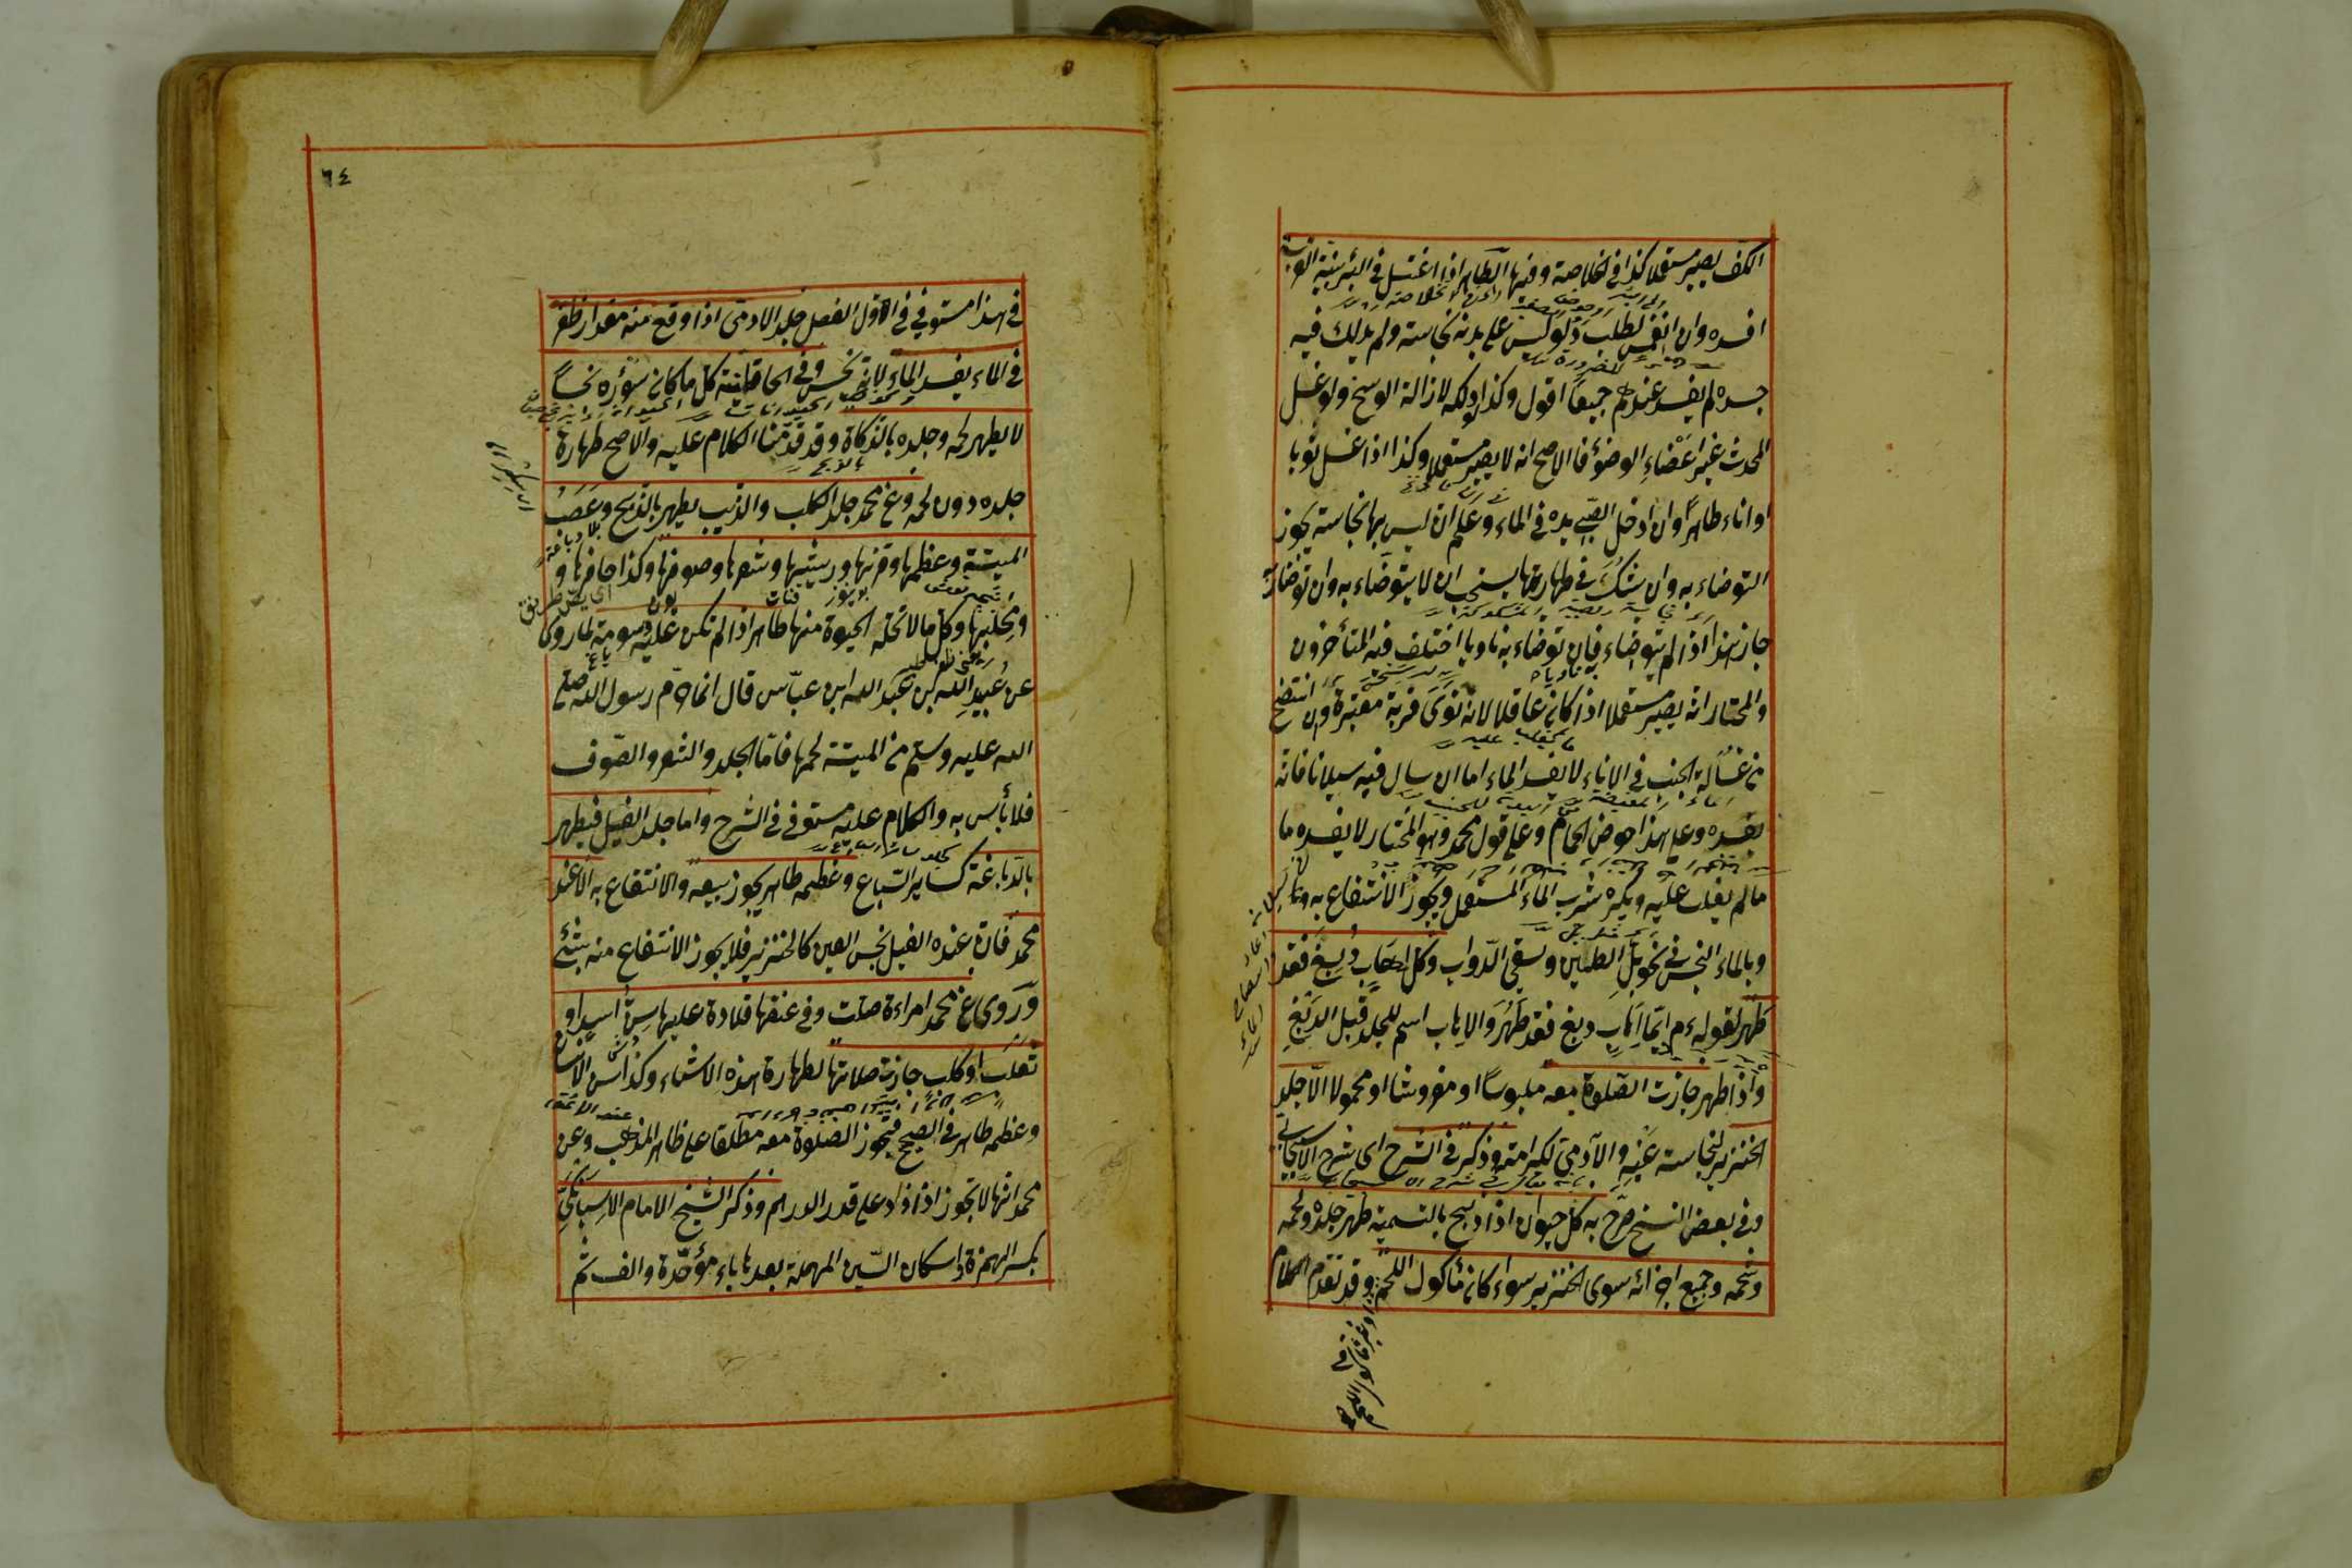 الكف يصير مستعملا كذا في الخلاصة وفيها الطاهر اذا اغتسل في البئر بنية القربة
افسده وان انغمس لطلب دلو وليس على بدنه نجاسة ولم يدلك فيه
جسده لم يفسد عندهم جميعا اقول وكذا لو دلكه لازالة الوسخ ولو غسل
المحدث غير اعضاء الوضوء فالاصح انه لا يصير مستعملا وكذا اذا غسل ثوبا
او اناء طاهرا وان ادخل الصبي يده في الماء وعلم ان ليس بها نجاسة يجوز
التوضاء به وان شك في طهارتها يستحب ان لا يتوضاء به وان توضاء به
جاز هذا اذا لم يتوضاء فان توضاء به ناويا اختلف فيه المتأخرون
والمختار انه يصير مستعملا اذا كان عاقلا لانه نوى قربة معتبرة وان انتضح
من غسالة الجنب في الاناء لا يفسد الماء اما ان سال فيه سيلانا فانه
يفسده وعلى هذا حوض الحمام وعلى قول محمد وهو المختار لا يفسده ما
مالم يغلب عليه ويكره شرب الماء المستعمل ويجوز الانتفاع به
وبالماء النجس في نحو بل الطين وسقي الدواب وكل اهاب دبغ فقد
طهر لقوله ءم ايما اهاب دبغ فقد طهر والاهاب اسم للجلد قبل الدبغ
واذا طهر جازت الصلوة معه ملبوسا او مفروشا او محمولا الا جلد
الخنزير لنجاسة عينه والآدمي لكرامته وذكر في الشرح اى شرح الاسبيجابي
وفي بعض النسخ صرح به كل حيوان اذا ذبح بالتسمية طهر جلده ولحمه
وشحمه وجميع اجزائه سوى الخنزير سواء كان مأكول اللحم وقد تقدم الكلام
او غير مأكول اللحم
٦٤
في هذا مستوفي في الاول الفصل جلد الادمي اذا وقع منه مقدار ظفر
في الماء يفسد الماء لانه نجس وفي الخاقانية كل ما كان سؤره نجسا
لا يطهر لحمه وجلده بالذكاة وقد قدمنا الكلام عليه والاصح طهارة
جلده دون لحمه وعن محمد جلد الكلب والذئب يطهر بالذبح وعصب
بلا دباغة
الميتة وعظمها وقرنها وريشها وشعرها وصوفها وكذا حافرها و
ومخلبها وكل ما لا تحله الحيوة منها طاهر اذا لم تكن عليه دسومة لما روى
عن عبيد الله بن عبد الله ابن عباس قال انما حرم رسول الله صلى
الله عليه وسلم من الميتة لحمها فاما الجلد والشعر والصوف
فلا بأس به والكلام عليه مستوفى في الشرح واما جلد الفيل فيطهر
بالدباغة كساير السباع وعظمه طاهر يجوز بيعه والانتفاع به الا عند
محمد فان عنده الفيل نجس العين كالخنزير فلا يجوز الانتفاع منه بشئ
وروى عن محمد امراءة صلت وفي عنقها قلادة عليها سن اسد او
ثعلب او كلب جازت صلاتها لطهارة هذه الاشياء وكذا سن الانسان
وعظمه طاهر في الصحيح فتجوز الصلوة معه مطلقا على ظاهر المذهب وعن
محمد انها لا تجوز اذا زاد على قدر الدرهم وذكر الشيخ الامام الاسبيجابي
بكسر الهمزة واسكان السين المهملة بعدها باء موحدة والف ثم